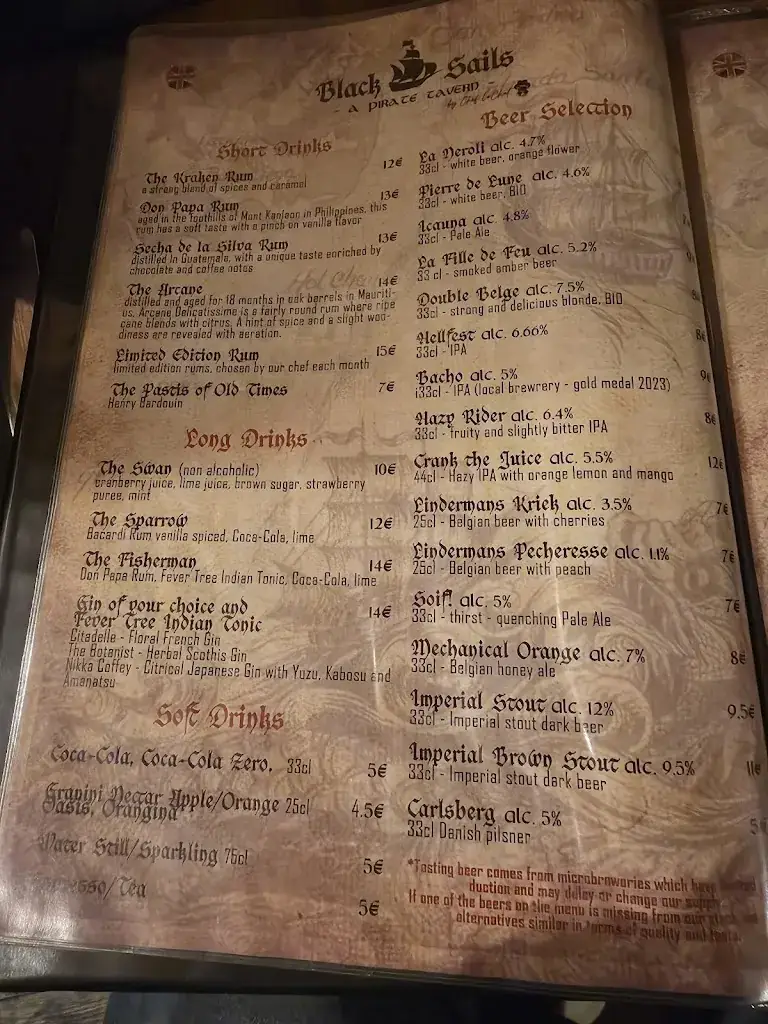 Black Sails
- A PIRATE TAVERN -
by
Short Drinks
The Kraken Rum 12€
a strong blend of spices and caramel
Don Papa Rum 13€
aged in the foothills of Mont Kanlaon in Philippines, this
rum has a soft taste with a pinch on vanilla flavor
Secha de la Silva Rum 13€
distilled in Guatemala, with a unique taste enriched by
chocolate and coffee notes
The Arcane 14€
distilled and aged for 18 months in oak barrels in Mauriti-
us, Arcane Delicatissime is a fairly round rum where ripe
cane blends with citrus. A hint of spice and a slight woo-
diness are revealed with aeration.
Limited Edition Rum 15€
limited edition rums, chosen by our chef each month
The Pastis of Old Times 7€
Henry Bardouin
Long Drinks
The Swan (non alcoholic) 10€
cranberry juice, lime juice, brown sugar, strawberry
puree, mint
The Sparrow 12€
Bacardi Rum vanilla spiced, Coca-Cola, lime
The Fisherman 14€
Don Papa Rum, Fever Tree Indian Tonic, Coca-Cola, lime
Gin of your choice and 14€
Fever Tree Indian Tonic
Citadelle - Floral French Gin
The Botanist - Herbal Scothis Gin
Nikka Coffey - Citrical Japanese Gin with Yuzu, Kabosu and
Amanatsu
Soft Drinks
Coca-Cola, Coca-Cola Zero, 33cl 5€
Granini Nectar Apple/Orange 25cl 4.5€
Oasis, Orangina
Water Still/Sparkling 75cl 5€
/Tea 5€
Beer Selection
La Neroli alc. 4.7%
33cl - white beer, orange flower
Pierre de Lune alc. 4.6%
33cl - white beer, BIO
Icauna alc. 4.8%
33cl - Pale Ale
La Fille de Feu alc. 5.2%
33 cl - smoked amber beer
Double Belge alc. 7.5%
33cl - strong and delicious blonde, BIO
Hellfest alc. 6.66% 8€
33cl - IPA
Bacho alc. 5% 9€
i33cl - IPA (local brewrery - gold medal 2023)
Hazy Rider alc. 6.4% 8€
33cl - fruity and slightly bitter IPA
Crank the Juice alc. 5.5% 12€
44cl - Hazy IPA with orange lemon and mango
Lindermans Kriek alc. 3.5% 7€
25cl - Belgian beer with cherries
Lindermans Pecheresse alc. 1.1% 7€
25cl - Belgian beer with peach
Soif! alc. 5% 7€
33cl - thirst - quenching Pale Ale
Mechanical Orange alc. 7% 8€
33cl - Belgian honey ale
Imperial Stout alc. 12% 9.5€
33cl - Imperial stout dark beer
Imperial Brown Stout alc. 9.5% 11€
33cl - Imperial stout dark beer
Carlsberg alc. 5%
33cl Danish pilsner
*Tasting beer comes from microbrnweries which have
duction and may delay or change our supply
If one of the beers on the menu is missing from our stock
alternatives similar in terms of quality and taste